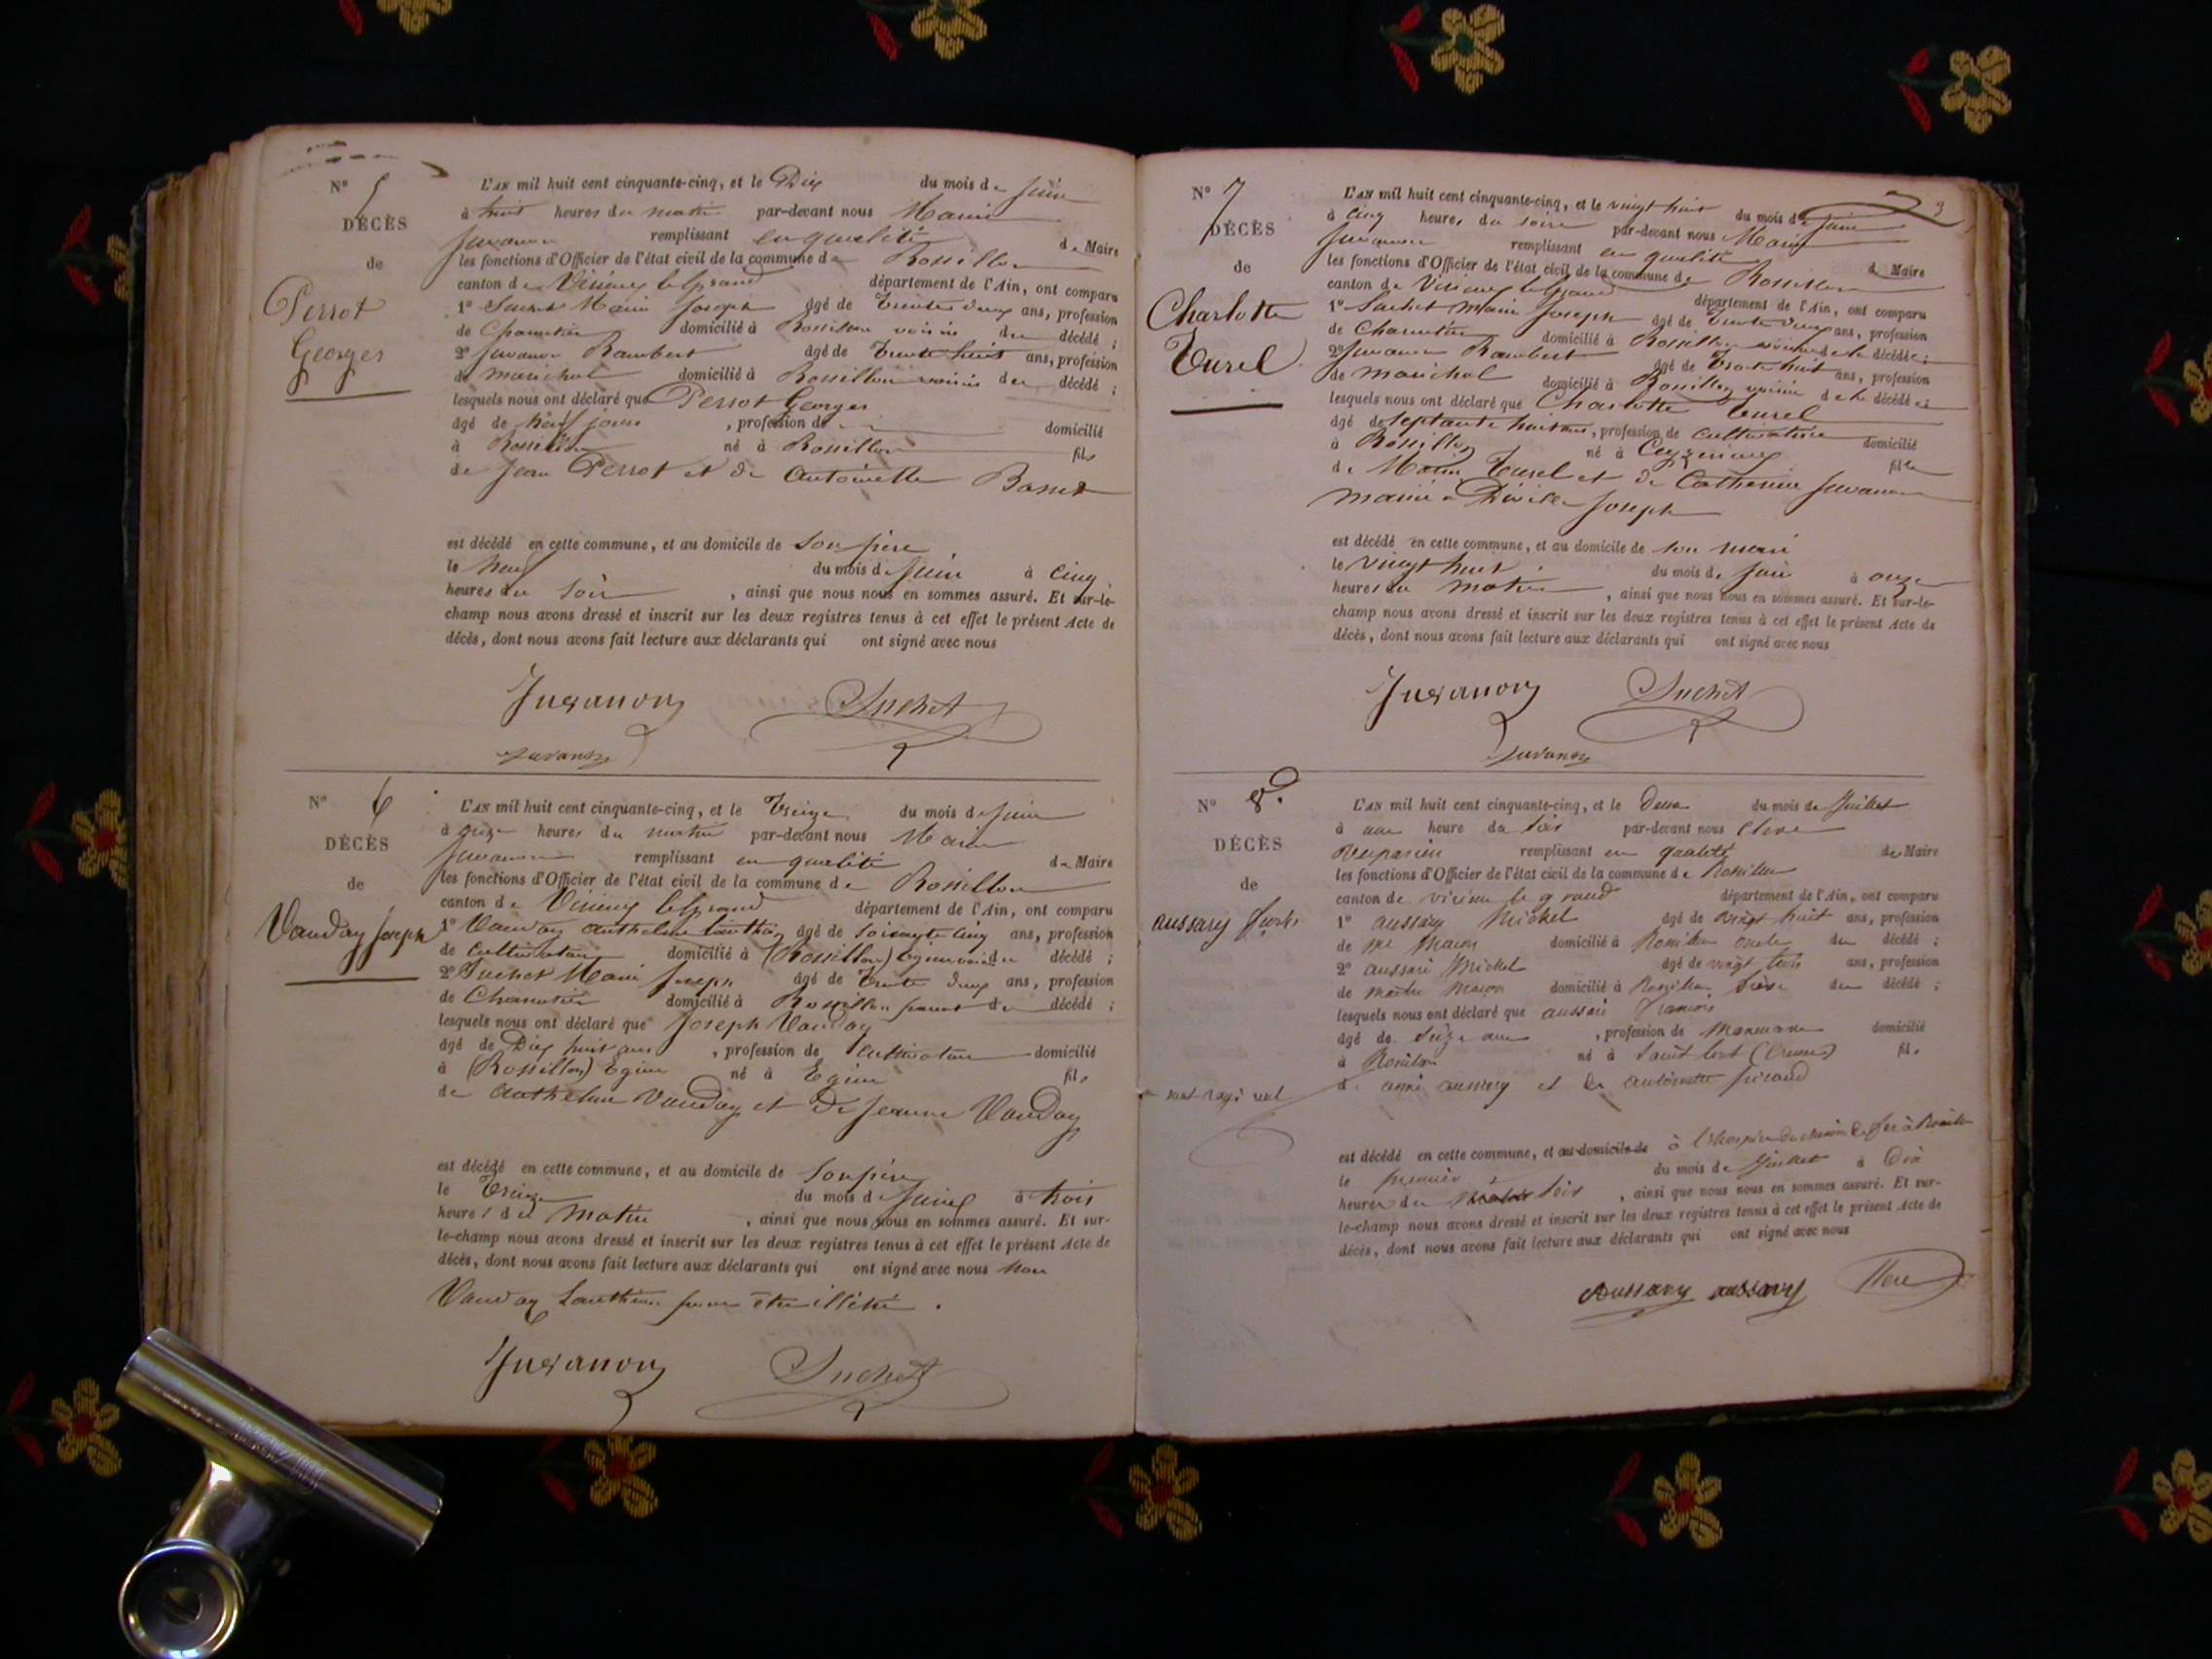 N° 5
DÉCÈS
de
Perrot
Georges
L'AN mil huit cent cinquante-cinq, et le Dix du mois de Juin
à huit heures du matin par-devant nous Marin
Juvanon remplissant en qualité de Maire
les fonctions d'Officier de l'état civil de la commune de Rossillon
canton de Virieu le grand département de l'Ain, ont comparu
1° Suchet Marie Joseph âgé de Trente deux ans, profession
de Charcutier domicilié à Rossillon voisin du décédé ;
2° Juvanon Rambert âgé de Trente huit ans, profession
de maréchal domicilié à Rossillon voisin du décédé ;
lesquels nous ont déclaré que Perrot Georges
âgé de neuf jours , profession de domicilié
à Rossillon né à Rossillon fils
de Jean Perrot et de Antoinette Bonnet
est décédé en cette commune, et au domicile de son père
le neuf du mois de Juin à cinq
heures du soir , ainsi que nous nous en sommes assuré. Et sur-le-
champ nous avons dressé et inscrit sur les deux registres tenus à cet effet le présent Acte de
décès, dont nous avons fait lecture aux déclarants qui ont signé avec nous
Juvanon Suchet
Juvanon
N° 6
DÉCÈS
de
Vauday Joseph
L'AN mil huit cent cinquante-cinq, et le Treize du mois de Juin
à onze heures du matin par-devant nous Marin
Juvanon remplissant en qualité de Maire
les fonctions d'Officier de l'état civil de la commune de Rossillon
canton de Virieu le grand département de l'Ain, ont comparu
1° Vauday Anthelme âgé de soixante cinq ans, profession
de cultivateur domicilié à (Rossillon) du décédé ;
2° Suchet Marie Joseph âgé de Trente deux ans, profession
de Charcutier domicilié à Rossillon du décédé ;
lesquels nous ont déclaré que Joseph Vauday
âgé de Dix huit ans , profession de cultivateur domicilié
à (Rossillon) Egieu né à Egieu fils
de Anthelme Vauday et de Jeanne Vauday
est décédé en cette commune, et au domicile de son père
le Treize du mois de Juin à trois
heures du matin , ainsi que nous nous en sommes assuré. Et sur-
le-champ nous avons dressé et inscrit sur les deux registres tenus à cet effet le présent Acte de
décès, dont nous avons fait lecture aux déclarants qui ont signé avec nous non
Vauday pour être illétré .
Juvanon Suchet
3
N° 7
DÉCÈS
de
Charlotte
Turel
L'AN mil huit cent cinquante-cinq, et le vingt huit du mois de Juin
à cinq heures du soir par-devant nous Marin
Juvanon remplissant en qualité de Maire
les fonctions d'Officier de l'état civil de la commune de Rossillon
canton de Virieu le grand département de l'Ain, ont comparu
1° Suchet Marie Joseph âgé de Trente deux ans, profession
de Charcutier domicilié à Rossillon voisin de la décédée ;
2° Juvanon Rambert âgé de Trente huit ans, profession
de maréchal domicilié à Rossillon voisin de la décédée
lesquels nous ont déclaré que Charlotte Turel
âgé de septante huit ans , profession de cultivatrice domicilié
à Rossillon né à Ceyzerieu fille
de Marin Turel et de Catherine Juvanon
mariée à Joseph
est décédé en cette commune, et au domicile de son mari
le vingt huit du mois de Juin à onze
heures du matin , ainsi que nous nous en sommes assuré. Et sur-le-
champ nous avons dressé et inscrit sur les deux registres tenus à cet effet le présent Acte de
décès, dont nous avons fait lecture aux déclarants qui ont signé avec nous
Juvanon Suchet
Juvanon
N° 8
DÉCÈS
de
aussary
L'AN mil huit cent cinquante-cinq, et le Deux du mois de Juillet
à une heure du soir par-devant nous
remplissant en qualité de Maire
les fonctions d'Officier de l'état civil de la commune de Rossillon
canton de virieu le grand département de l'Ain, ont comparu
1° aussary Michel âgé de vingt huit ans, profession
de maçon domicilié à Rossillon oncle du décédé ;
2° aussari Michel âgé de vingt trois ans, profession
de maître maçon domicilié à Rossillon frère du décédé ;
lesquels nous ont déclaré que aussari francois
âgé de seize ans , profession de manoeuvre domicilié
à Rossillon né à Saint (Creuse) fils
de aussary et de antoinette picaud
est décédé en cette commune, et au domicile de à l'hospice du chemin de fer à Rossillon
le premier du mois de Juillet à Dix
heures du soir , ainsi que nous nous en sommes assuré. Et sur-
le-champ nous avons dressé et inscrit sur les deux registres tenus à cet effet le présent Acte de
décès, dont nous avons fait lecture aux déclarants qui ont signé avec nous
Aussary aussary